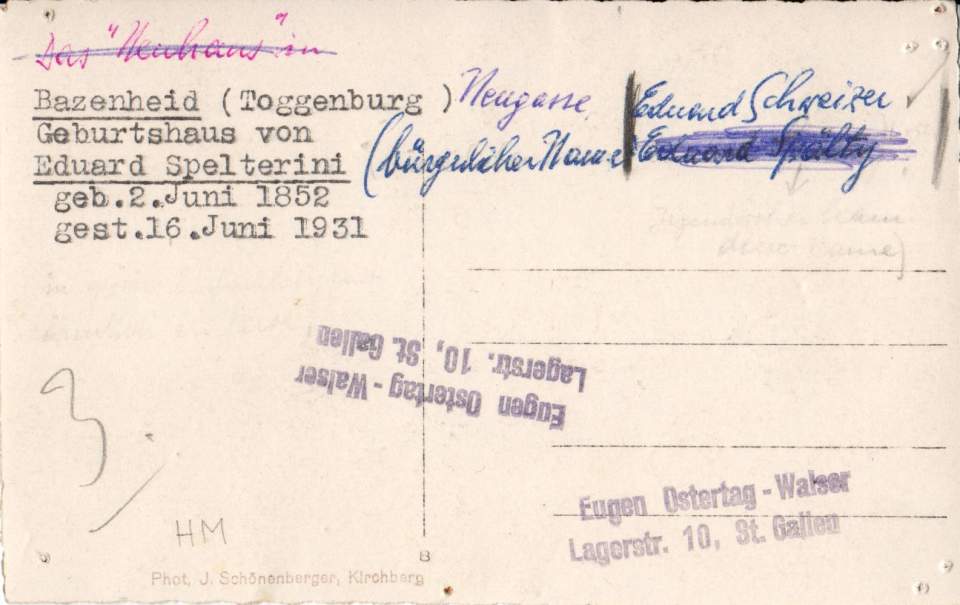 Das "Neuhaus" in
Bazenheid (Toggenburg ) Neugasse
Geburtshaus von
Eduard Spelterini
geb.2.Juni 1852
gest.16.Juni 1931
Eduard Schweizer
(bürgerlicher Name Eduard Spälty
Name)
Eugen Ostertag - Walser
Lagerstr. 10, St. Gallen
Eugen Ostertag - Walser
Lagerstr. 10, St. Gallen
3
HM
8
Phot. J. Schönenberger, Kirchberg